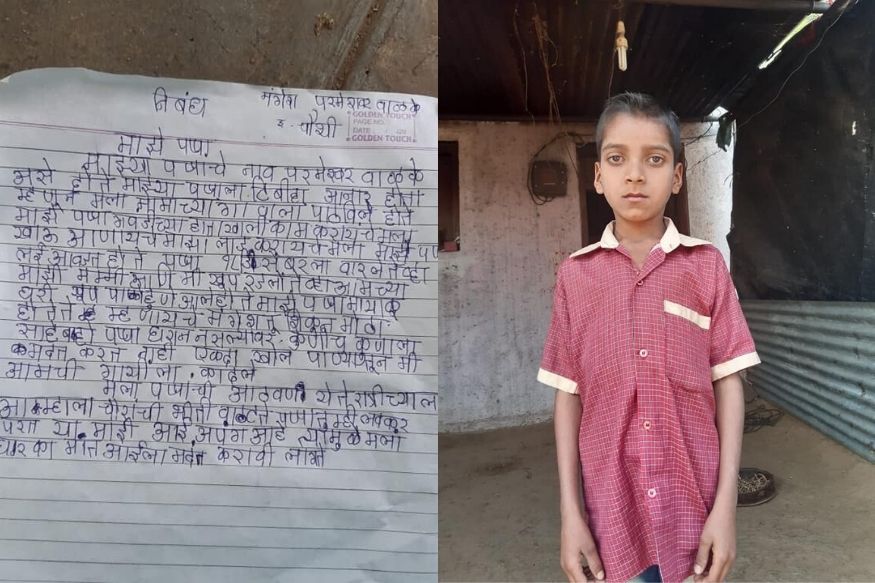 निबंध
मंगेश परमेश्वर वाळके
इ. चौथी
GOLDEN TOUCH
PAGE NO.
DATE
GOLDEN TOUCH
माझे पपा
माझ्या पपाचे नाव परमेश्वर वाळके
असे होते माझ्या पपाला टिबीचा आजार होता
म्हणून मला मामाच्या गावाला पाठविले होते
माझे पपा गवंडीच्या हाता खाली काम करायचे मला
खाऊ आणायचे माझा लाड करायचे मला माझे पपा
लई आवडत होते पपा १८ ला वारले तेव्हा
माझी मम्मी आणि मी खूप रडलो तेव्हा आमच्या
घरी खूप पाहुणे आले होते माझे पपा मायाळू
होते ते म्हणायचे मंगेश तू शिकून मोठा
साहेब हो पपा घरात नसल्यावर कुणीच कुणाला
मदत करत नाही एकदा खोल पाण्यातून मी
आमची काढले
मला पपाची आठवण येते रात्रीच्याला
आम्हाला चोराची भीती वाटते पपा तुम्ही लवकर
परत या माझी आई अपंग आहे त्यामुळे मला
आईला मदत करावी लागते